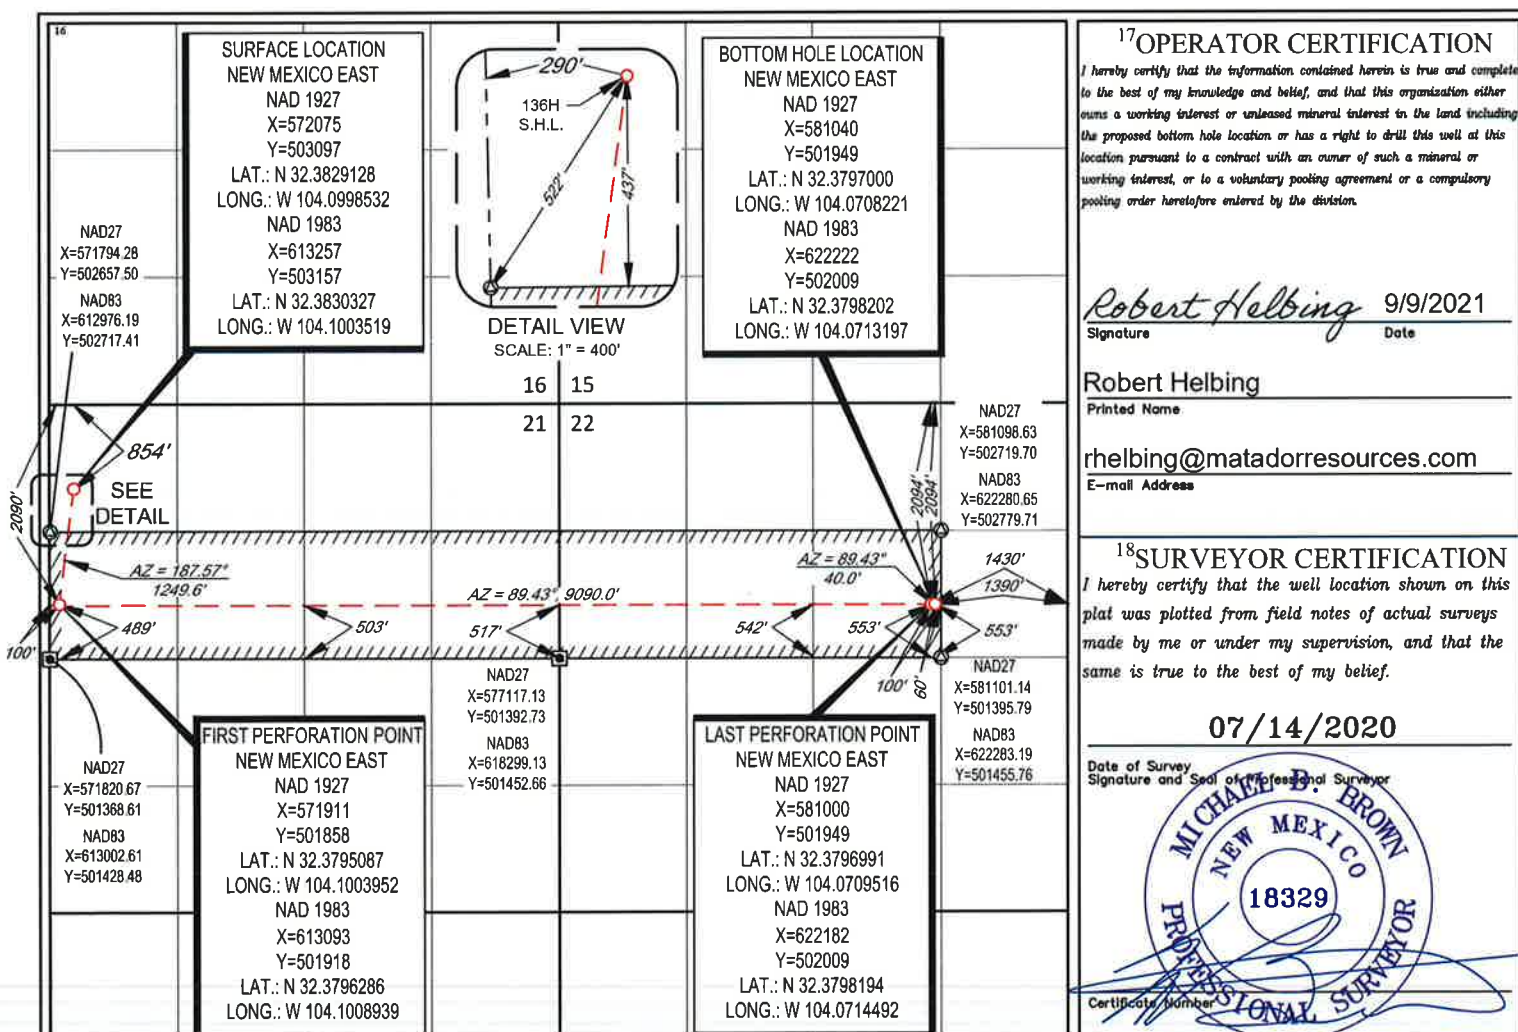 16
SURFACE LOCATION
NEW MEXICO EAST
NAD 1927
X=572075
Y=503097
LAT.: N 32.3829128
LONG.: W 104.0998532
NAD 1983
X=613257
Y=503157
LAT.: N 32.3830327
LONG.: W 104.1003519
290'
136H
S.H.L.
522'
437'
DETAIL VIEW
SCALE: 1" = 400'
BOTTOM HOLE LOCATION
NEW MEXICO EAST
NAD 1927
X=581040
Y=501949
LAT.: N 32.3797000
LONG.: W 104.0708221
NAD 1983
X=622222
Y=502009
LAT.: N 32.3798202
LONG.: W 104.0713197
NAD27
X=571794.28
Y=502657.50
NAD83
X=612976.19
Y=502717.41
16 15
21 22
854'
2090'
SEE
DETAIL
2094'
2094'
NAD27
X=581098.63
Y=502719.70
NAD83
X=622280.65
Y=502779.71
AZ = 187.57°
1249.6'
AZ = 89.43°, 9090.0'
AZ = 89.43°
40.0'
1430'
1390'
100'
489'
503'
517'
542'
553'
553'
100'
60'
NAD27
X=577117.13
Y=501392.73
NAD83
X=618299.13
Y=501452.66
NAD27
X=581101.14
Y=501395.79
NAD83
X=622283.19
Y=501455.76
NAD27
X=571820.67
Y=501368.61
NAD83
X=613002.61
Y=501428.48
FIRST PERFORATION POINT
NEW MEXICO EAST
NAD 1927
X=571911
Y=501858
LAT.: N 32.3795087
LONG.: W 104.1003952
NAD 1983
X=613093
Y=501918
LAT.: N 32.3796286
LONG.: W 104.1008939
LAST PERFORATION POINT
NEW MEXICO EAST
NAD 1927
X=581000
Y=501949
LAT.: N 32.3796991
LONG.: W 104.0709516
NAD 1983
X=622182
Y=502009
LAT.: N 32.3798194
LONG.: W 104.0714492
17 OPERATOR CERTIFICATION
I hereby certify that the information contained herein is true and complete
to the best of my knowledge and belief, and that this organization either
owns a working interest or unleased mineral interest in the land including
the proposed bottom hole location or has a right to drill this well at this
location pursuant to a contract with an owner of such a mineral or
working interest, or to a voluntary pooling agreement or a compulsory
pooling order heretofore entered by the division.
Robert Helbing 9/9/2021
Signature Date
Robert Helbing
Printed Name
rhelbing@matadorresources.com
E-mail Address
18 SURVEYOR CERTIFICATION
I hereby certify that the well location shown on this
plat was plotted from field notes of actual surveys
made by me or under my supervision, and that the
same is true to the best of my belief.
07/14/2020
Date of Survey
Signature and Seal of Professional Surveyor
MICHAEL B. BROWN
NEW MEXICO
18329
PROFESSIONAL SURVEYOR
Certificate Number